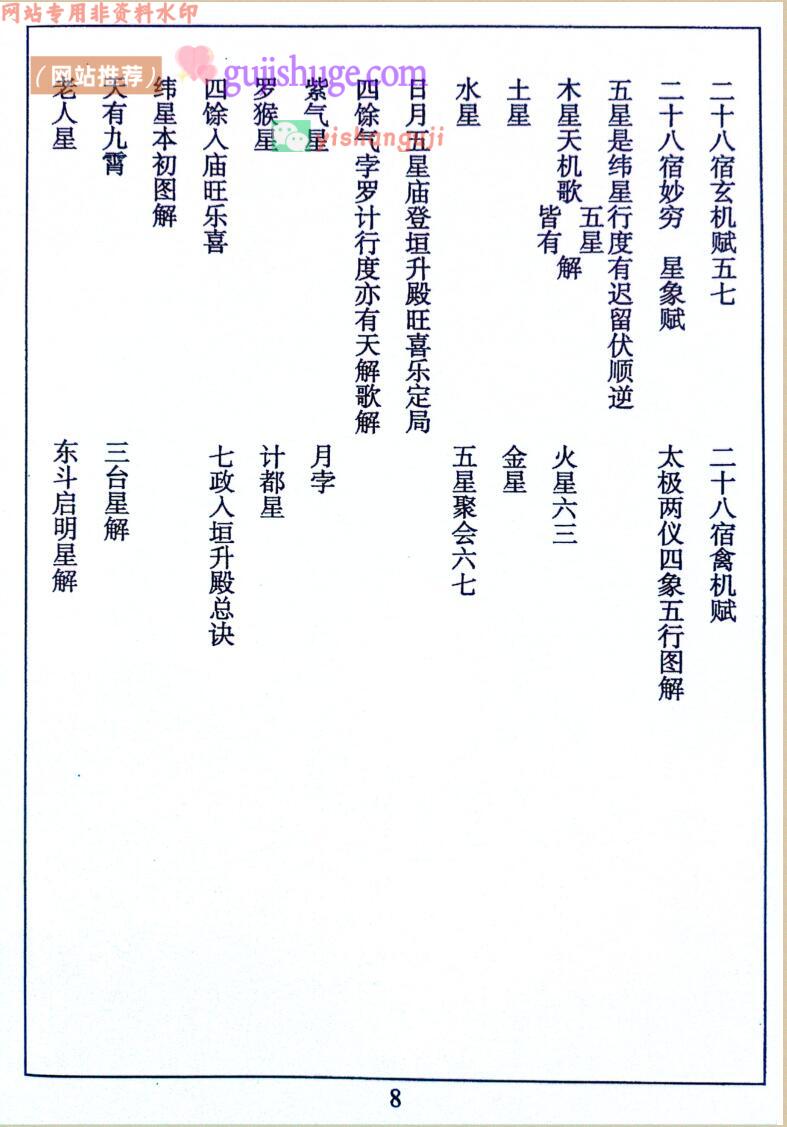 网站专用非资料水印
（网站推荐）
gujishuge.com
yishanguji
二十八宿玄机赋五七
二十八宿禽机赋
二十八宿妙穷 星象赋
太极两仪四象五行图解
五星是纬星行度有迟留伏顺逆
木星天机歌 五星皆有解
火星六三
土星
金星
水星
五星聚会六七
日月五星庙登垣升殿旺喜乐定局
四馀气孛罗计行度亦有天解歌解
紫气星
月孛
罗猴星
计都星
四馀入庙旺乐喜
七政入垣升殿总诀
纬星本初图解
天有九霄
三台星解
老人星
东斗启明星解
8